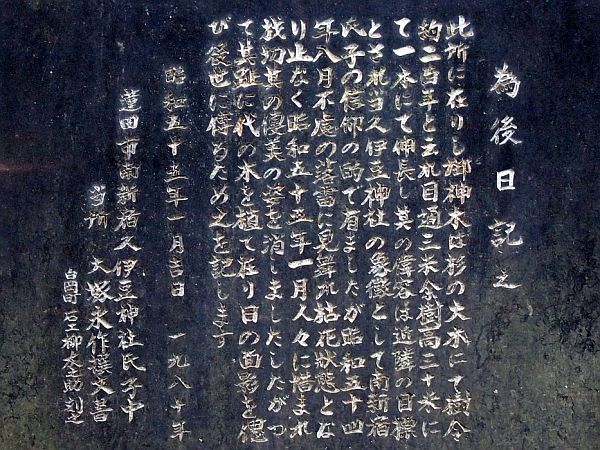 為後日記之
此所に在りし御神木は杉の大木にて樹令
約二百年と云れ目通三米余樹高三十米に
て一本にて伸長し其の偉容は近隣の目標
とされ当久伊豆神社の象徴として南新宿
氏子の信仰の的で有ましたが昭和五十四
年八月不慮の落雷に見舞れ枯死状態とな
り止なく昭和五十五年一月人々に惜まれ
栽切其の優美の姿を消しましたしたがつ
て其趾に代の木を植て在り日の面影を偲
び後世に傳るため之を記します
昭和五十五年一月吉日 一九八〇年
蓮田市南新宿久伊豆神社氏子中
当所 大塚永作撰文書
白岡町 石工柳太助刻之